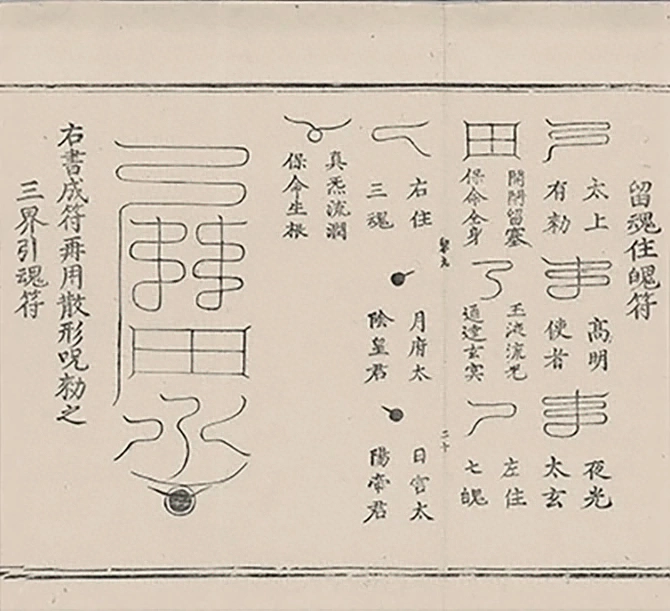 留魂住魄符
太上
有勑
高明
使者
夜光
太玄
留塞
保命全身
玉液流光
通達玄冥
左住
七魄
二十
右住
三魂
月府太
陰皇君
日宮太
陽帝君
真炁流潤
保命生根
右書成符再用散形呪勑之
三界引魂符